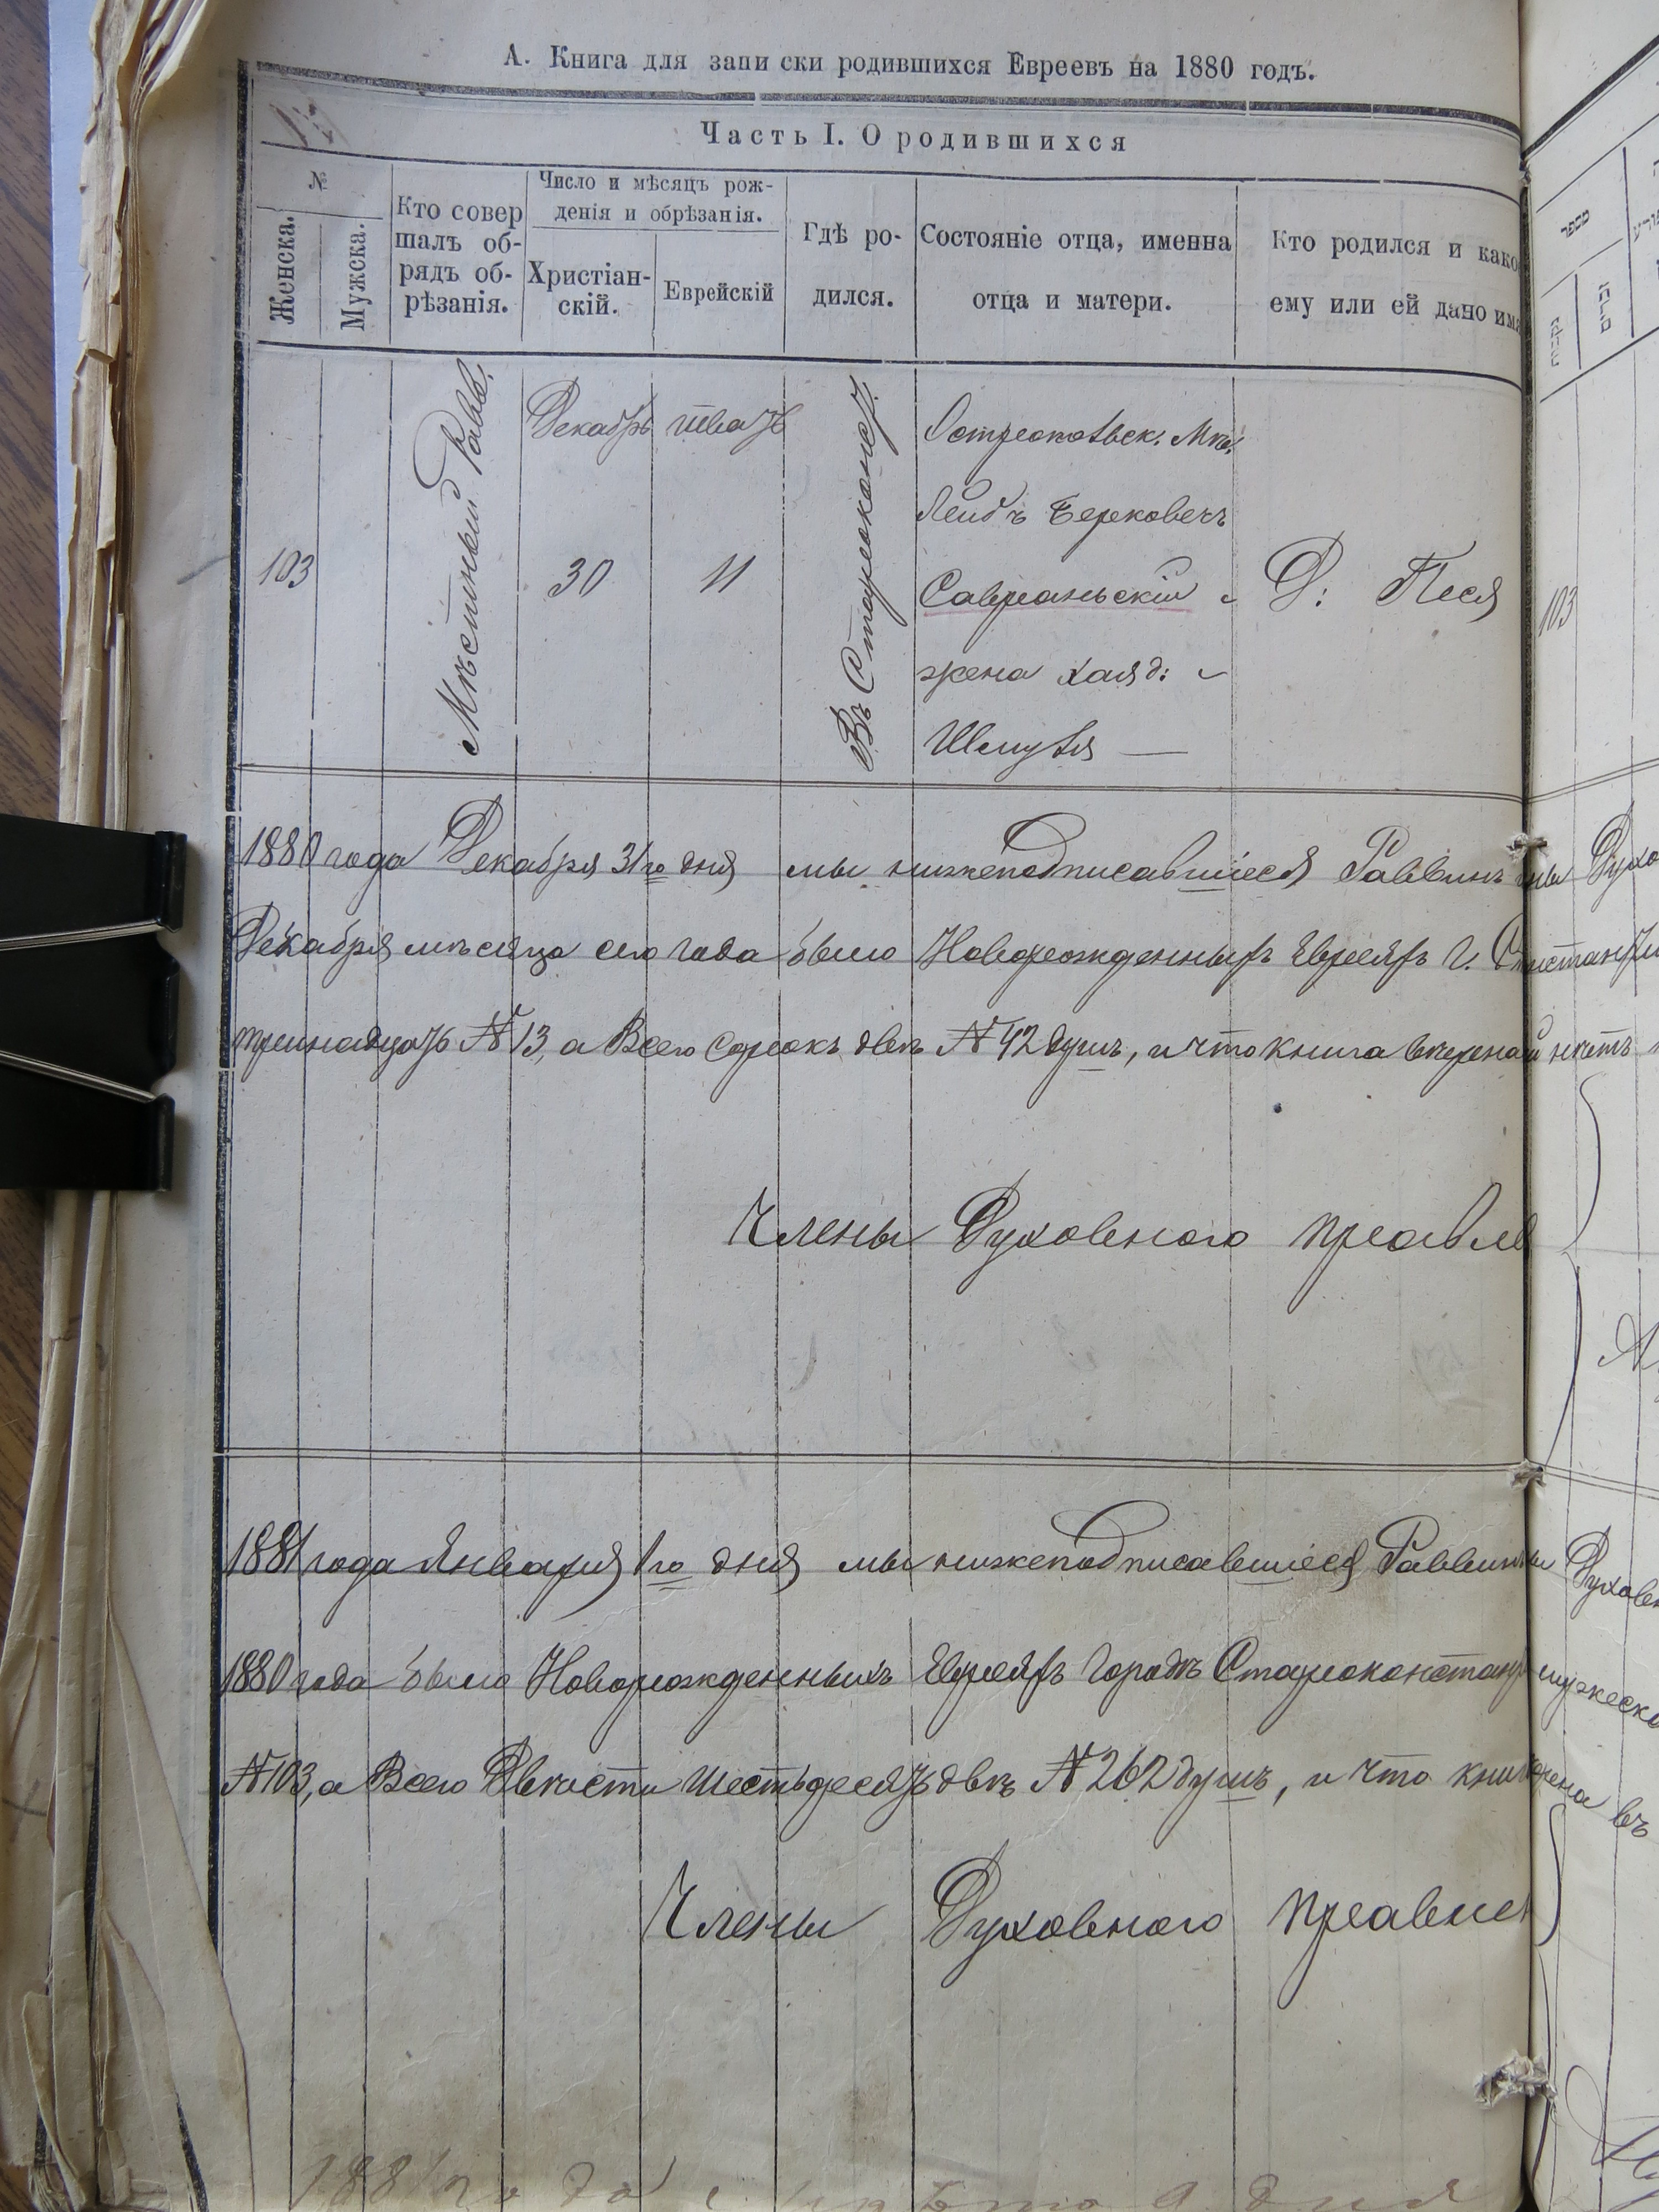 А. Книга для запи ски родившихся Евреевъ на 1880 годъ.
Часть I. О родившихся
№
Женска.
Мужска.
Кто совер
шалъ об-
рядъ об-
рѣзанія.
Число и мѣсяцъ рож-
денія и обрѣзанія.
Христіан-
скій.
Еврейскій
Гдѣ ро-
дился.
Состояніе отца, именна
отца и матери.
Кто родился и како
ему или ей дано има
מספר
103
Мѣстный Равв.
Декабрь
30
11
Въ Староконст.
Лейбъ Берковечъ
Савраньскій и
жена Хая д:
Шмуля —
Д: Песя
103
1880 года Декабря 31го дня мы нижеподписавшіеся Раввинъ
Декабря мѣсяца сего года было Новорожденныхъ Евреевъ Г.
тринадцать № 13, а Всего сорокъ двѣ № 42 душъ, и что книга нѣтъ
Члены Духовного правле
1881 года Января 1го дня мы нижеподписавшіеся Раввинъ Духовн
1880 года было Новорожденныхъ Евреевъ Городѣ Староконстант мужеско
№ 103, а Всего Двѣсти шестьдесять двѣ № 262 душъ, и что въ
Члены Духовного правле
1881 года дня